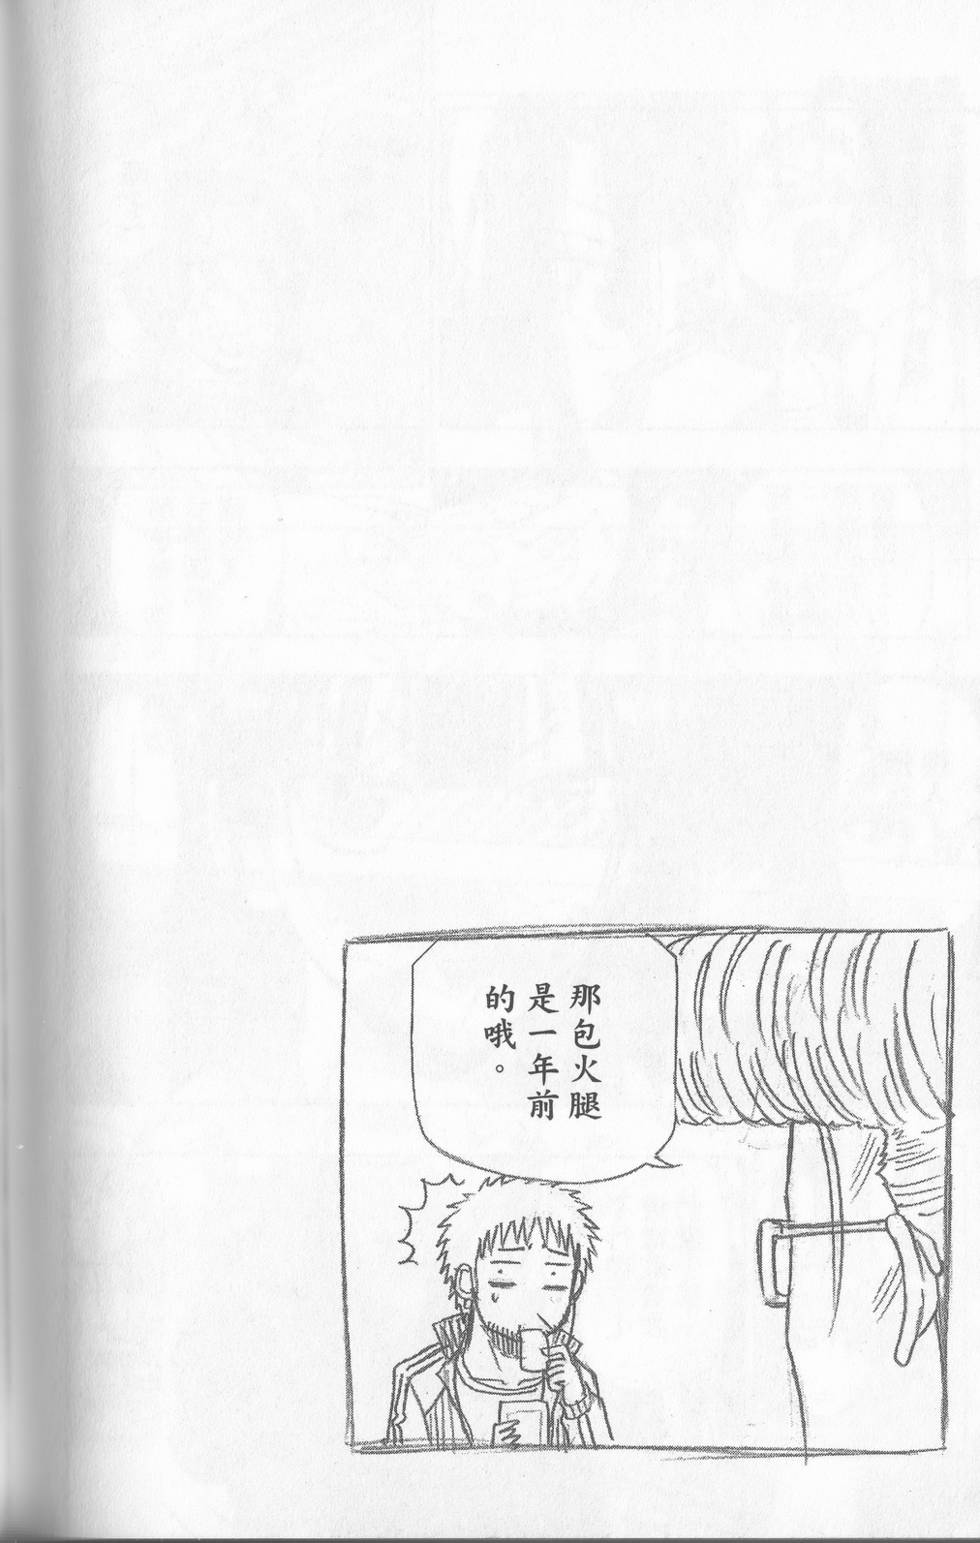 那包火腿
是一年前
的哦。